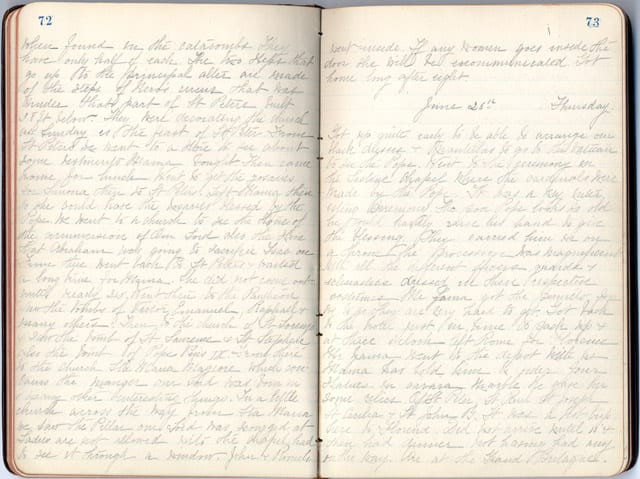 72
when found in the catacombs they
have only half of each. The two steps that
go up to the principal alter are made
of the steps of Neros circus that was
under that part of St Peters built
ft below. They were decorating the church
as Sunday is the feast of St Peter. From
St Peters we went to a store to see about
some vestments Mama bought then came
home for lunch. Went to get the rosaries
for then to St Peters left Mama there
so she could have the rosaries blessed by the
Pope. We went to a church to see the stone of
the circumcision of Our Lord also the stone
that Abraham was going to sacrifice Isaac on
time then went back to St Peters & waited
a long time for Mama. She did not come out
until nearly six. Went then to the Pantheon
saw the tombs of Victor Emanuel Raphael &
many others. Then to the church of St Lorenzo
saw the tomb of St Laurence & St Stephen
also the tomb of Pope Pius IX. From there
to the church Sta Maria Magiore which con-
tains the manger our Lord was born in
& many other interesting things. In a little
church across the way from Sta Maria
we saw the Pillar our Lord was scourged at
Ladies are not allowed into the chapel, had
to see it through a window. John &
73
went inside. If any women goes inside the
door she will be excommunicated. Got
home long after eight.
June 25th Thursday.
Got up quite early to be able to arrange our
black dresses & Mantillas to go to the Vatican
to see the Pope. Went to the ceremony in
the Sistine Chapel where the cardinals were
made by the Pope. It was a very inter-
esting ceremony. The poor Pope looks so old
he could hardly raise his hand to give
the blessing. They carried him in on
a throne. The procession was magnificent
with all the different officers guards &
dressed in their respective
costumes. We
they are very hard to get. Got back
to the hotel just in time to pack up &
at three o'clock left Rome for Florence
went to the depot with us
Mama has told him to order four
statues in carrara marble. He gave her
some relics of St Peter, St Paul St Joseph
St Cecilia & St John B. It was a hot trip
here to Florence. Did not arrive until &
then had dinner not having had any
on the way. Are at the Grand Bretagne.